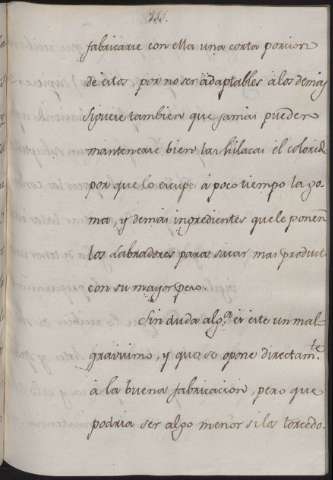 fabricarse con ella una corta porcion
de estos por no ser adaptables à los demas
Siguese tambien que jamas pueden
mantenerse bien las hilazas el colorido
por que lo escupe à poco tiempo la go
ma, y demas ingredientes que le ponen
los Labradores para sacar mas producto
con su mayor peso.
Sin duda alg.ª es este un mal
gravisimo, y que se opone directam.te
à la buena fabricacion, pero que
podria ser algo menor si las torcedo.